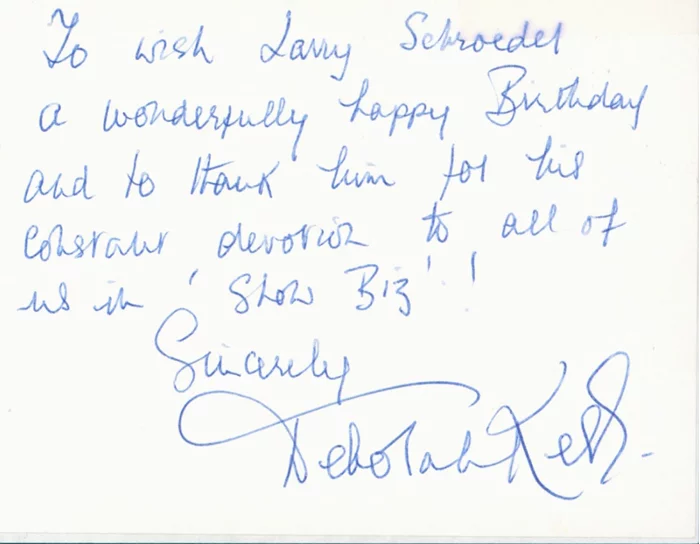 To wish Larry Schroedel
a wonderfully happy Birthday
and to thank him for his
constant devotion to all of
us in 'Show Biz'!
Sincerely
Deborah Kerr.